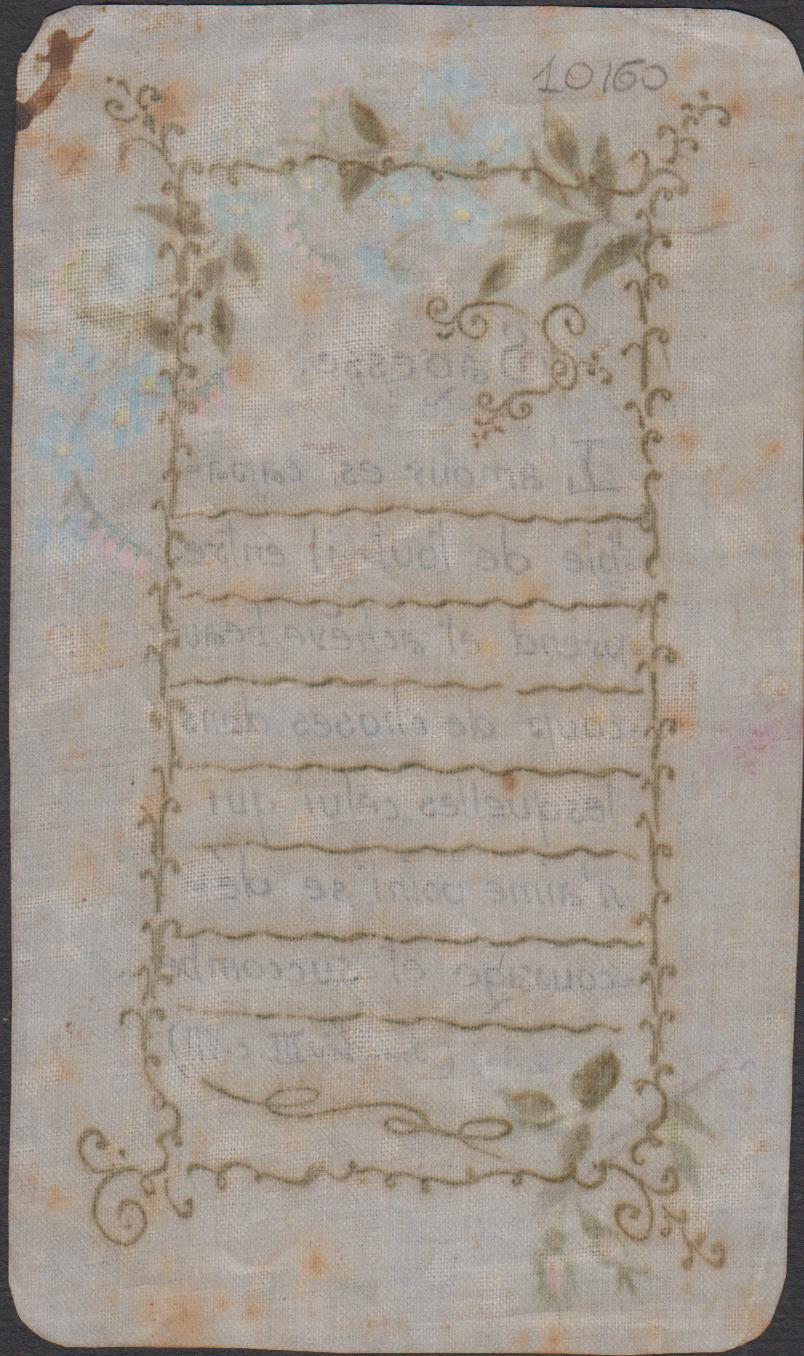 10160
Sagesse.
L'amour est capa-
ble de tout, il entre-
prend et achève beau-
coup de choses dans
lesquelles celui qui
n'aime point se dé-
courage et succombe